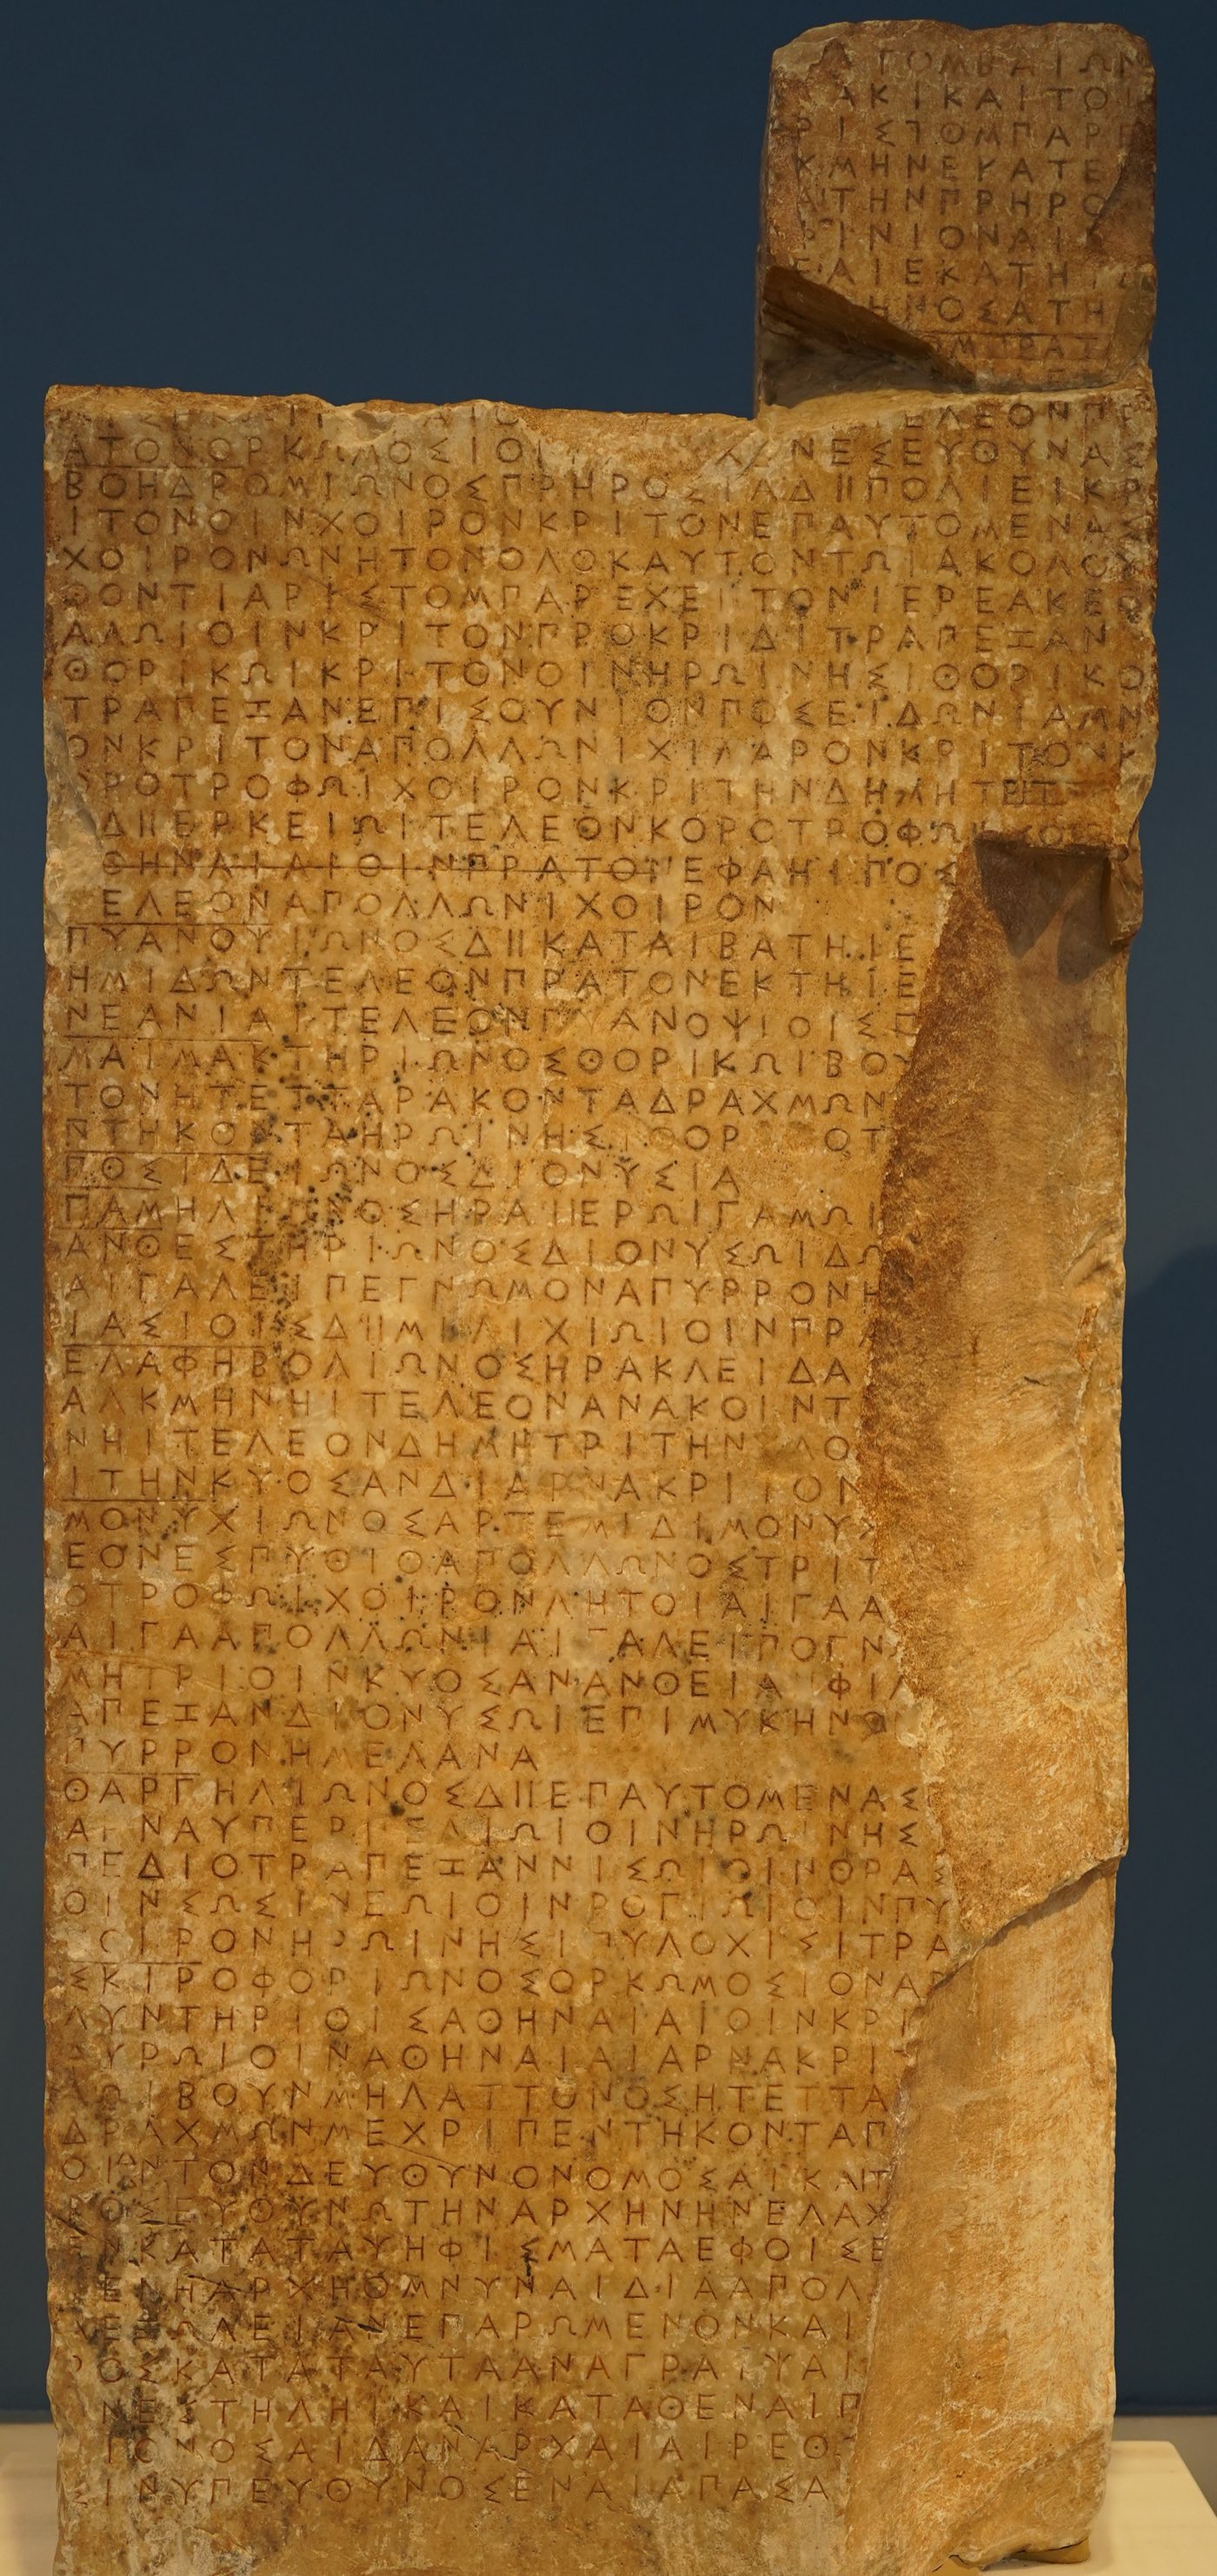 ΤΟΜΒΑΙΩΝ
ΑΚΙΚΑΙΤΟΙ
ΡΙΣΤΟΜΠΑΡ
ΜΗΝΕΚΑΤΕ
ΑΙΤΗΝΠΡΗΡΟ
ΡΙΝΙΟΝΑΙ
ΑΙΕΚΑΤΗ
ΗΝΟΣΑΤΗ
ΟΜΠΡΑΤ
ΕΛΕΟΝΠΡ
ΑΤΟΝΟΡΚΩΜΟΣΙΟΝ ΝΕΣΕΥΘΥΝΑΣ
ΒΟΗΔΡΟΜΙΩΝΟΣΠΡΗΡΟΣΙΑΔΙΙΠΟΛΙΕΙΚΡ
ΙΤΟΝΟΙΝΧΟΙΡΟΝΚΡΙΤΟΝΕΠΑΥΤΟΜΕΝΑΣ
ΧΟΙΡΟΝΩΝΗΤΟΝΟΛΟΚΑΥΤΟΝΤΩΙΑΚΟΛΟΥ
ΘΟΝΤΙΑΡΙΣΤΟΜΠΑΡΕΧΕΙΤΟΝΙΕΡΕΑΚΕΦ
ΑΛΩΙΟΙΝΚΡΙΤΟΝΠΡΟΚΡΙΔΙΤΡΑΠΕΖΑΝ
ΘΟΡΙΚΩΙΚΡΙΤΟΝΟΙΝΗΡΩΙΝΗΣΙΘΟΡΙΚΟ
ΤΡΑΠΕΖΑΝΕΠΙΣΟΥΝΙΟΝΠΟΣΕΙΔΩΝΙΑΜΝ
ΟΝΚΡΙΤΟΝΑΠΟΛΛΩΝΙΧΙΜΑΡΟΝΚΡΙΤΟΝΚ
ΟΡΟΤΡΟΦΩΙΧΟΙΡΟΝΚΡΙΤΗΝΔΗΜΗΤΡΙΤ
ΔΙΙΕΡΚΕΙΩΙΤΕΛΕΟΝΚΟΡΟΤΡΟΦΩΙΧΟΙ
ΘΗΝΑΙΑΙΟΙΝΠΡΑΤΟΝΕΦΑΛΗΙΠΟΣ
ΕΛΕΟΝΑΠΟΛΛΩΝΙΧΟΙΡΟΝ
ΠΥΑΝΟΨΙΩΝΟΣΔΙΙΚΑΤΑΙΒΑΤΗΙΕ
ΗΜΙΔΩΝΤΕΛΕΟΝΠΡΑΤΟΝΕΚΤΗΙΕ
ΝΕΑΝΙΑΙΤΕΛΕΟΝΠΥΑΝΟΨΙΟΙΣΠ
ΜΑΙΜΑΚΤΗΡΙΩΝΟΣΘΟΡΙΚΩΙΒΟΥ
ΤΟΝΗΤΕΤΤΑΡΑΚΟΝΤΑΔΡΑΧΜΩΝ
ΝΤΗΚΟΝΤΑΗΡΩΙΝΗΣΙΘΟΡ ΟΤ
ΠΟΣΙΔΕΙΩΝΟΣΔΙΟΝΥΣΙΑ
ΓΑΜΗΛΙΩΝΟΣΗΡΑΙΙΕΡΩΙΓΑΜΩΙ
ΑΝΘΕΣΤΗΡΙΩΝΟΣΔΙΟΝΥΣΩΙΔΩ
ΑΙΓΑΛΕΙΠΕΓΝΩΜΟΝΑΠΥΡΡΟΝΗ
ΙΑΣΙΟΙΣΔΙΙΜΙΛΙΧΙΩΙΟΙΝΠΡΑ
ΕΛΑΦΗΒΟΛΙΩΝΟΣΗΡΑΚΛΕΙΔΑ
ΑΛΚΜΗΝΗΙΤΕΛΕΟΝΑΝΑΚΟΙΝΤ
ΝΗΙΤΕΛΕΟΝΔΗΜΗΤΡΙΤΗΝΧΛΟ
ΙΤΗΝΚΥΟΣΑΝΔΙΑΡΝΑΚΡΙΤΟΝ
ΜΟΝΥΧΙΩΝΟΣΑΡΤΕΜΙΔΙΜΟΝΥΧ
ΕΟΝΕΣΠΥΘΙΟΑΠΟΛΛΩΝΟΣΤΡΙΤ
ΟΤΡΟΦΩΙΧΟΙΡΟΝΛΗΤΟΙΑΙΓΑΑ
ΑΙΓΑΑΠΟΛΛΩΝΙΑΙΓΑΛΕΙΠΟΓΝ
ΜΗΤΡΙΟΙΝΚΥΟΣΑΝΑΝΘΕΙΑΝΦΙΛ
ΑΠΕΖΑΝΔΙΟΝΥΣΩΙΕΠΙΜΥΚΗΝΟΝ
ΠΥΡΡΟΝΗΜΕΛΑΝΑ
ΘΑΡΓΗΛΙΩΝΟΣΔΙΙΕΠΑΥΤΟΜΕΝΑΣ
ΑΡΝΑΥΠΕΡΠΕΔΙΩΙΟΙΝΗΡΩΙΝΗΣ
ΠΕΔΙΟΤΡΑΠΕΖΑΝΝΙΣΩΙΟΙΝΘΡΑΣ
ΟΙΝΣΩΣΙΝΕΩΙΟΙΝΡΟΓΙΩΙΟΙΝΠΥ
ΟΙΡΟΝΗΡΩΙΝΗΣΙΠΥΛΟΧΙΣΙΤΡΑ
ΣΚΙΡΟΦΟΡΙΩΝΟΣΟΡΚΩΜΟΣΙΟΝΑΠ
ΛΥΝΤΗΡΙΟΙΣΑΘΗΝΑΙΑΙΟΙΝΚΡΙ
ΑΥΡΩΙΟΙΝΑΘΗΝΑΙΑΙΑΡΝΑΚΡΙ
ΛΩΙΒΟΥΝΜΗΛΑΤΤΟΝΟΣΗΤΕΤΤΑ
ΔΡΑΧΜΩΝΜΕΧΡΙΠΕΝΤΗΚΟΝΤΑΠ
ΟΙΑΝΤΟΝΔΕΥΘΥΝΟΝΟΜΟΣΑΙΚΑΙΤ
ΡΟΣΕΥΘΥΝΩΤΗΝΑΡΧΗΝΗΝΕΛΑΧ
ΕΝΚΑΤΑΤΑΨΗΦΙΣΜΑΤΑΕΦΟΙΣΕ
ΕΝΗΑΡΧΗΟΜΝΥΝΑΙΔΙΑΑΠΟΛ
ΕΞΩΛΕΙΑΝΕΠΑΡΩΜΕΝΟΝΚΑΙ
ΡΟΣΚΑΤΑΤΑΥΤΑΑΝΑΓΡΑΨΑΙ
ΝΕΣΤΗΛΗΙΚΑΙΚΑΤΑΘΕΝΑΙΠ
ΙΟΝΟΣΑΙΔΑΝΑΡΧΑΙΑΙΡΕΘ
ΣΙΝΥΠΕΥΘΥΝΟΣΕΝΑΙΑΠΑΣΑ